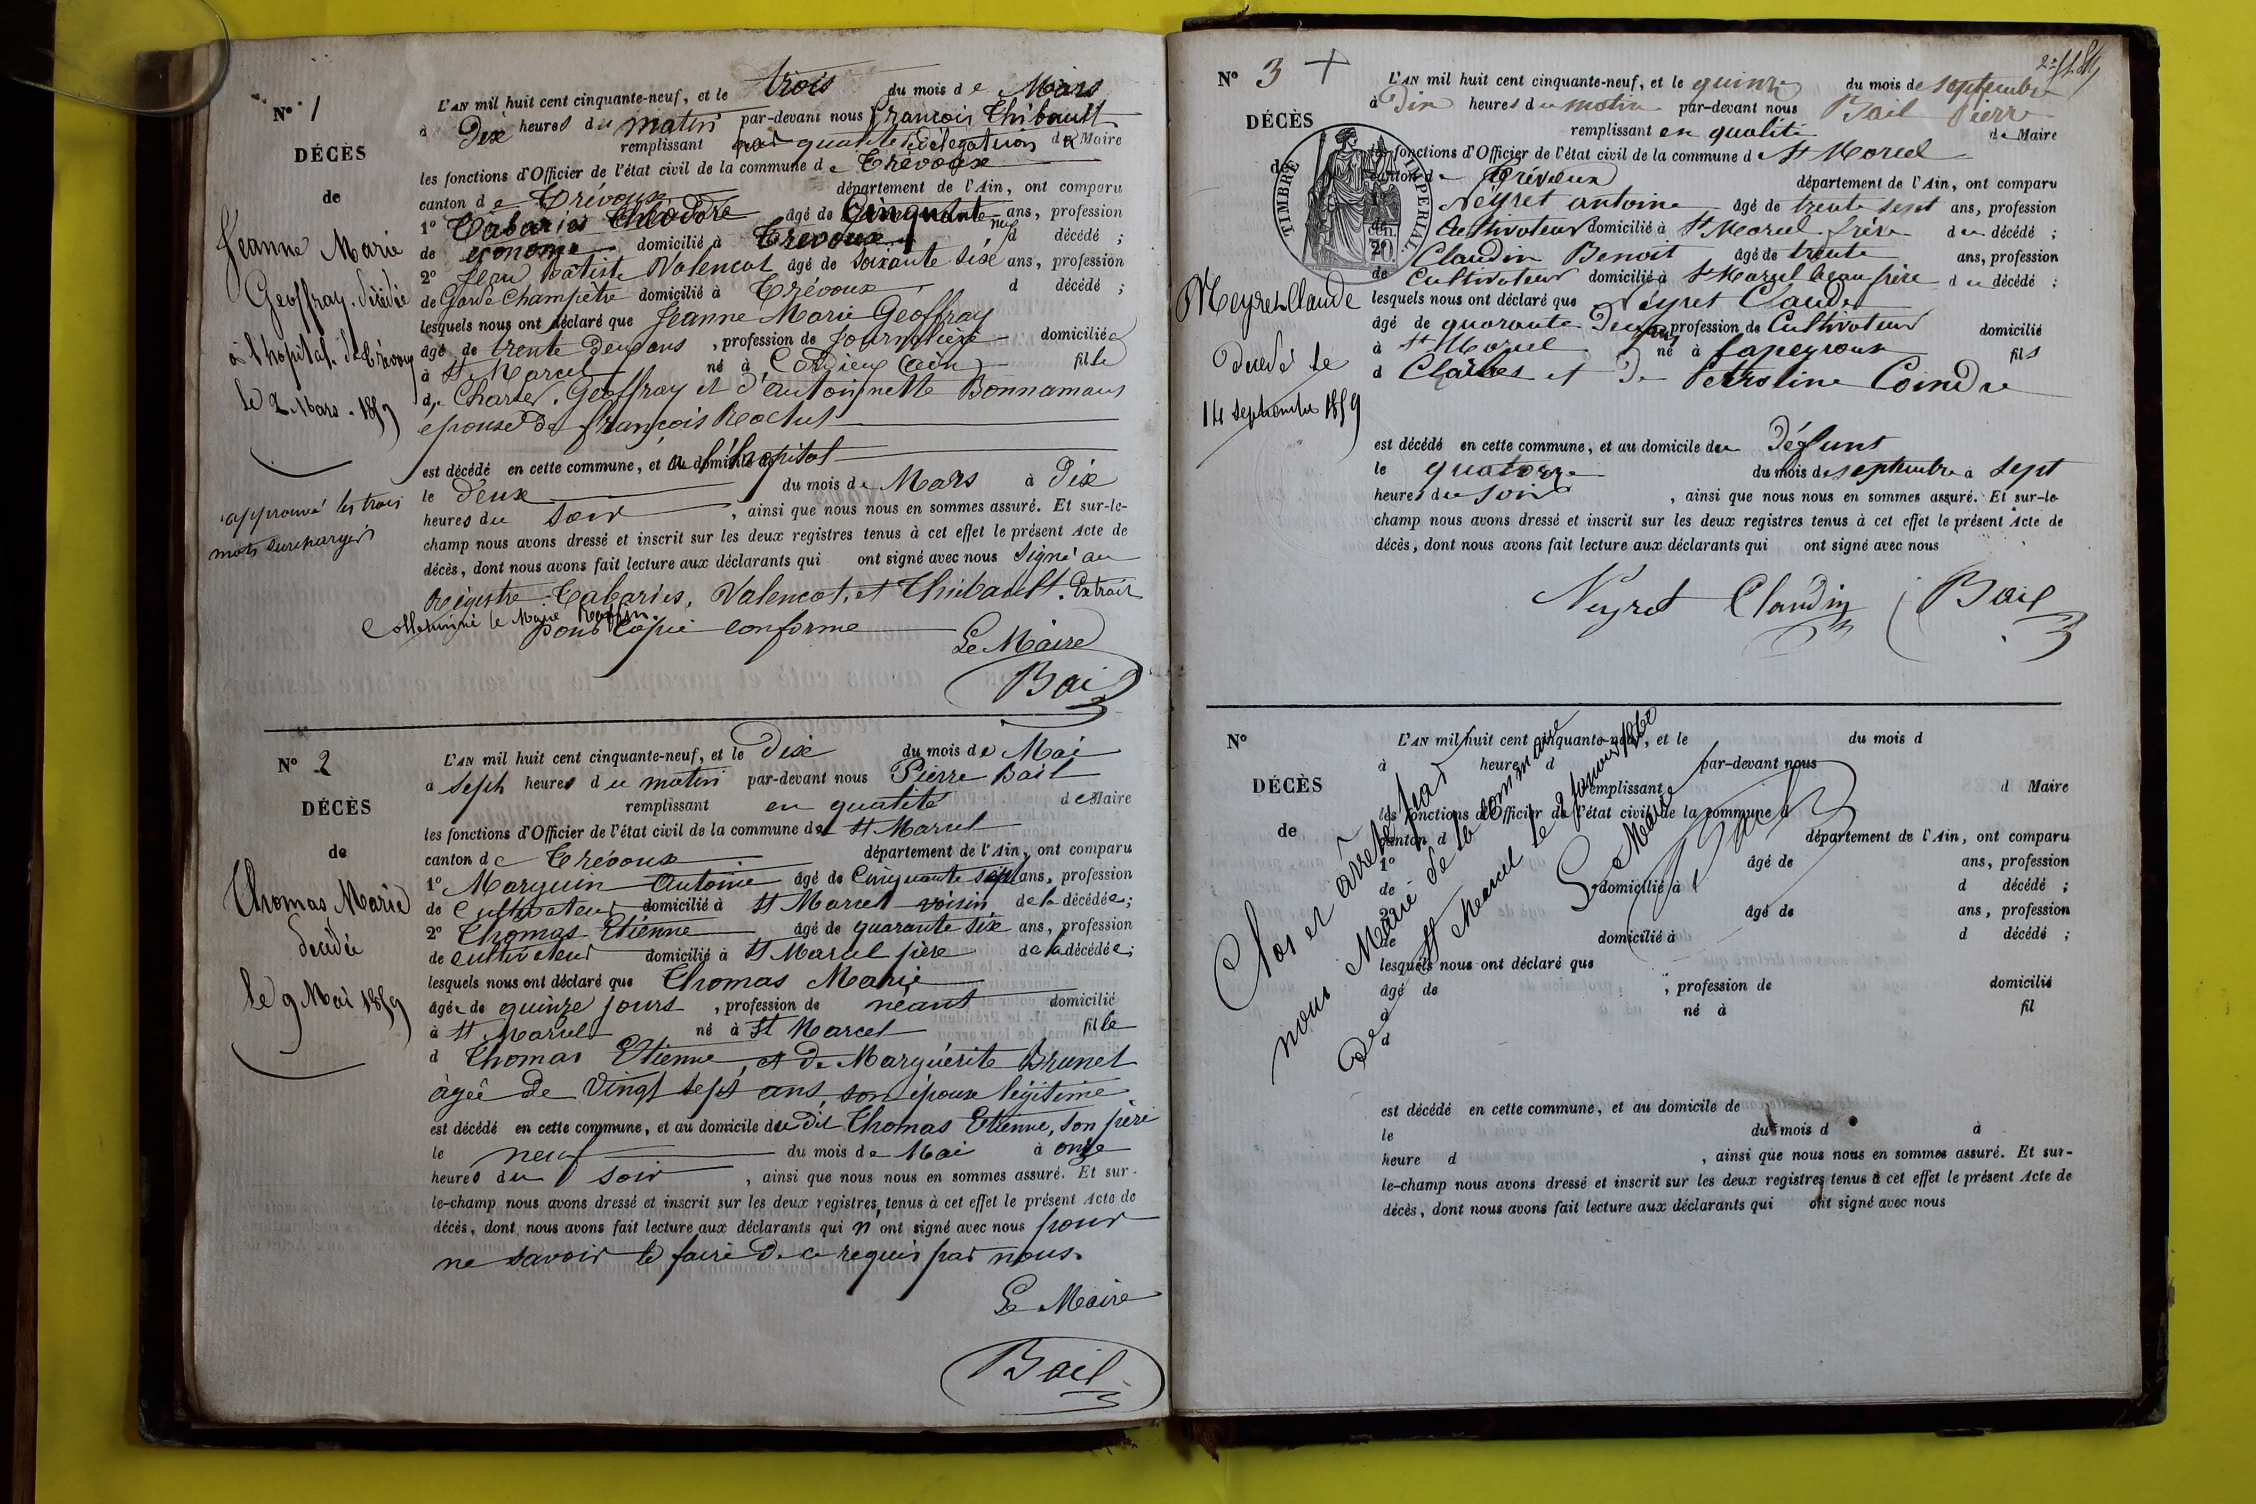 N° 1
DÉCÈS
de
Jeanne Marie
Geoffray. décédée
à l'hopital de Trévoux
le 2 Mars. 1859
approuvé les trois
mots surchargés
L'AN mil huit cent cinquante-neuf, et le trois du mois de Mars
à Dix heures du matin par-devant nous françois Thibault
remplissant par délégation de Maire
les fonctions d'Officier de l'état civil de la commune de Trévoux
canton de Trévoux département de l'Ain, ont comparu
1° Cabaries Théodore âgé de Cinquante ans, profession
de économe domicilié à Trevoux d décédé ;
2° Jean Batiste Valencot âgé de soixante six ans, profession
de Garde Champêtre domicilié à Trévoux d décédé ;
lesquels nous ont déclaré que Jeanne Marie Geoffray
âgé de trente deux ans, profession de Journalière domiciliée
à St Marcel né à Cordieux (ain) fille
de Charles Geoffray et d'antoinette Bonnamour
épouse de françois
est décédé en cette commune, et au domicile de l'hopital
le deux du mois de Mars à Dix
heures du soir, ainsi que nous nous en sommes assuré. Et sur-le-
champ nous avons dressé et inscrit sur les deux registres tenus à cet effet le présent Acte de
décès, dont nous avons fait lecture aux déclarants qui ont signé avec nous Signé au
Régistre Cabaries, Valencot, et Thibault. Extrait
Collationné le Maire Raffin
pour Copie conforme
Le Maire
Bail
N° 2
DÉCÈS
de
Thomas Marie
décédée
le 9 Mai 1859
L'AN mil huit cent cinquante-neuf, et le Dix du mois de Mai
à sept heures du matin par-devant nous Pierre Bail
remplissant en qualité de Maire
les fonctions d'Officier de l'état civil de la commune de St Marcel
canton de Trévoux département de l'Ain, ont comparu
1° Marguin Antoine âgé de Cinquante sept ans, profession
de Cultivateur domicilié à St Marcel voisin de la décédée ;
2° Thomas Etienne âgé de quarante six ans, profession
de cultivateur domicilié à St Marcel père de la décédée ;
lesquels nous ont déclaré que Thomas Marie
âgée de quinze jours, profession de néant domicilié
à St Marcel né à St Marcel fille
d Thomas Etienne, et de Marguérite Brunet
âgée de vingt sept ans, son épouse légitime
est décédé en cette commune, et au domicile du dit Thomas Etienne, son père
le neuf du mois de Mai à onze
heures du soir, ainsi que nous nous en sommes assuré. Et sur-
le-champ nous avons dressé et inscrit sur les deux registres, tenus à cet effet le présent Acte de
décès, dont nous avons fait lecture aux déclarants qui n'ont signé avec nous pour
ne savoir le faire de ce requis par nous.
Le Maire
Bail
N° 3
DÉCÈS
d
TIMBRE IMPERIAL
Neyret Claude
décédé le
14 septembre 1859
L'AN mil huit cent cinquante-neuf, et le quinze du mois de septembre
à Dix heures du matin par-devant nous Bail Pierre
remplissant en qualité de Maire
les fonctions d'Officier de l'état civil de la commune d St Marcel
canton de Trévoux département de l'Ain, ont comparu
Neyret antoine âgé de trente sept ans, profession
de Cultivateur domicilié à St Marcel frère du décédé ;
2° Claudin Benoit âgé de trente ans, profession
de Cultivateur domicilié à St Marcel beau frère du décédé ;
lesquels nous ont déclaré que Neyret Claude
âgé de quarante Deux ans profession de Cultivateur domicilié
à St Marcel né à Lapeyrouse fils
d Charles et De Perroline Coindre
est décédé en cette commune, et au domicile du Défunt
le quatorze du mois de septembre à sept
heures du soir, ainsi que nous nous en sommes assuré. Et sur-le-
champ nous avons dressé et inscrit sur les deux registres tenus à cet effet le présent Acte de
décès, dont nous avons fait lecture aux déclarants qui ont signé avec nous
Neyret Claudin Bail
N°
DÉCÈS
de
L'AN mil huit cent cinquante-neuf, et le du mois d
à heure d par-devant nous
remplissant d Maire
les fonctions d'Officier de l'état civil de la commune d
canton d département de l'Ain, ont comparu
1° âgé de ans, profession
de domicilié à d décédé ;
2° âgé de ans, profession
de domicilié à d décédé ;
lesquels nous ont déclaré que
âgé de, profession de domicilié
à né à fil
d
est décédé en cette commune, et au domicile de
le du mois d à
heure d, ainsi que nous nous en sommes assuré. Et sur-
le-champ nous avons dressé et inscrit sur les deux registres tenus à cet effet le présent Acte de
décès, dont nous avons fait lecture aux déclarants qui ont signé avec nous
Clos et arrêté par
nous Maire de la commune
de St Marcel le janvier 1860
Le Maire
Bail